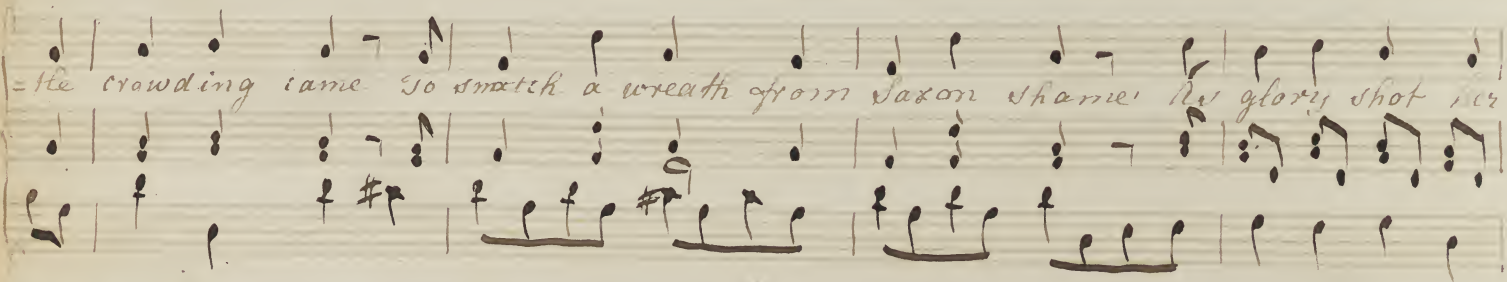 =tle crowding came to snatch a wreath from Saxon shame as glory shot her